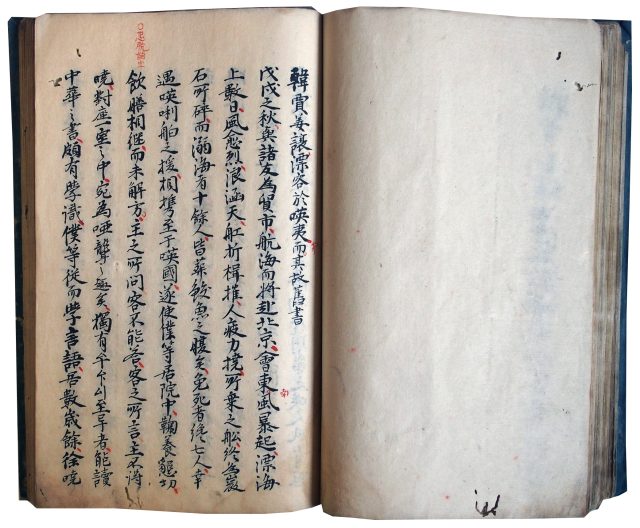 韓賈姜讓漂客於𠸄夷而其故舊書
戊戌之秋與諸友為貿市航海而將赴北京會東風暴起漂海
南
上數日風愈烈浪涵天舡折楫摧人疲力撓所乘之舩終為巖
石所碎而溺海有十餘人皆葬餒魚之腹矣免死者纔七人幸
遇𠸄唎舶之援相携至于𠸄國遂使僕等居院中鞠養懇切
飲膳相继而未解方主之所問客不能答客之所言主不得
曉對座一室之中宛為啞聾之遊矣獨有平至早者能讀
中華之書頗有學識僕等從而學言語居數歲餘徐曉